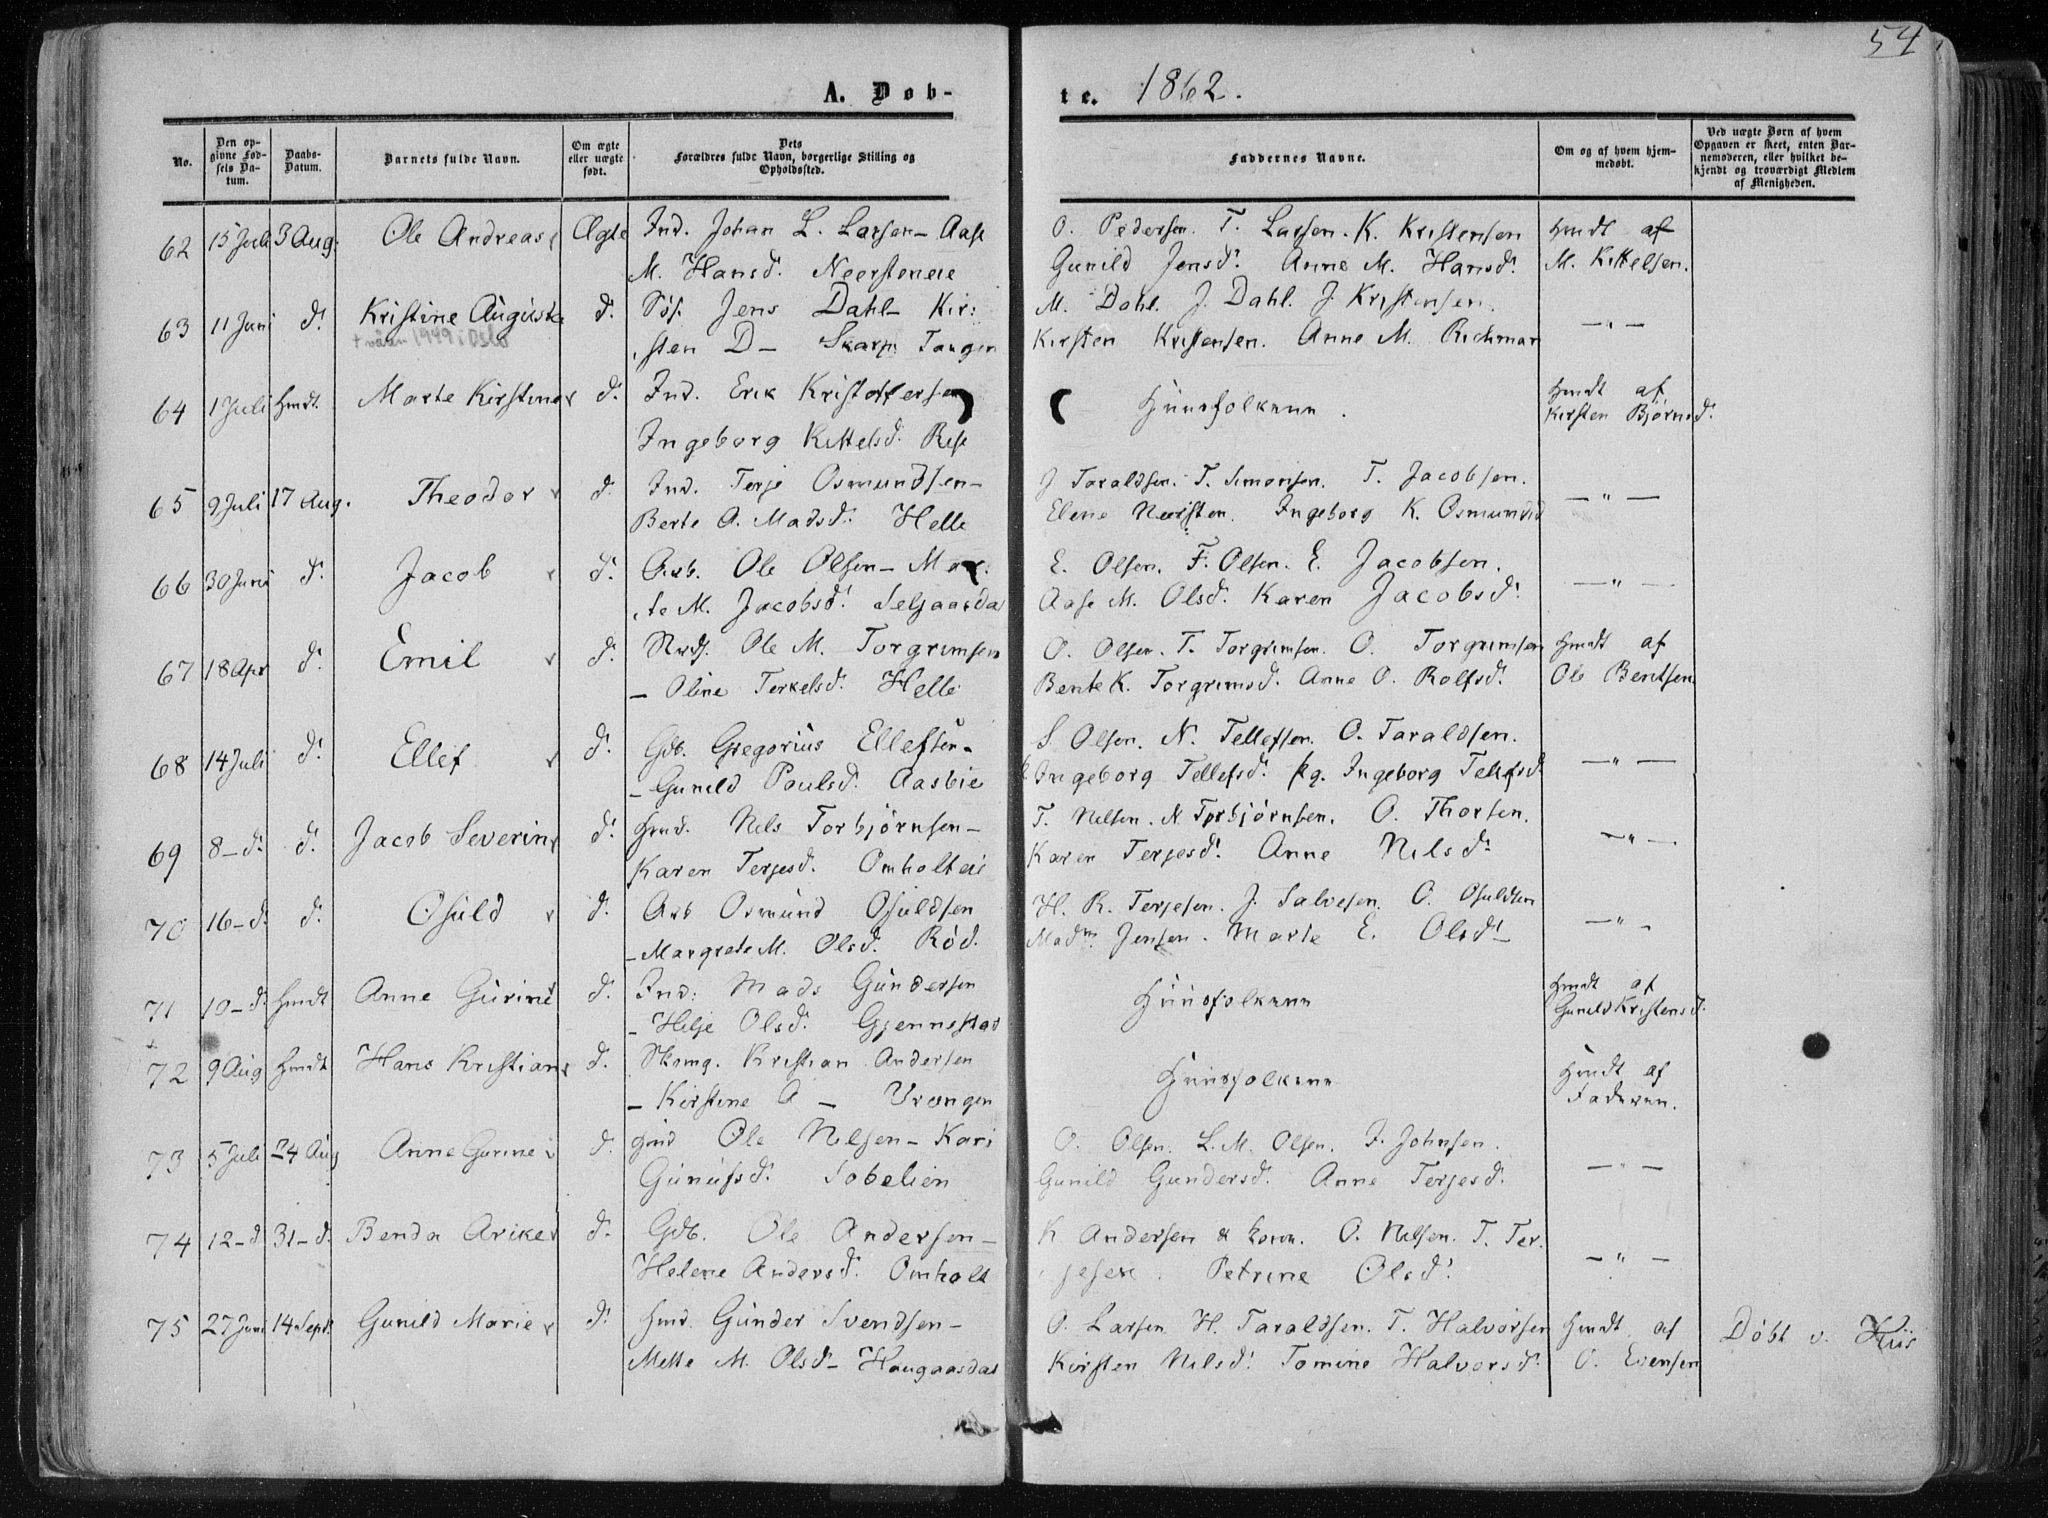 54
A. Døb-
te. 1862.
No.
Den opgivne Fødsels Datum.
Daabs-Datum.
Barnets fulde Navn.
Om ægte eller uægte født.
Dets Forældres fulde Navn, borgerlige Stilling og Opholdssted.
Faddernes Navne.
Om og af hvem hjemmedøbt.
Ved uægte Børn af hvem Opgaven er skeet, enten Barnemoderen, eller hvilket bekjendt og troværdigt Medlem af Menigheden.
62 15 Juli 3 Aug. Ole Andreas Ægte Ind. Johan L. Larsen - Aase O. Pedersen. T. Larsen. K. Kristensen Hmdt af
M. Hansd. Neersteneie Gunild Jensd. Anne M. Hansd. M. Kittelsen.
63 11 Juni d. Kristine Auguste d. Søf. Jens Dahl - Kir: M. Dahl. J. Dahl. J Kristensen. — " —
sten D - Skarp. Tangen Kirsten Kristensen. Anne M. Richmar
64 1 Juli Hmdt. Marte Kirstine d. Ind. Erik Kristoffersen Huusfolkene. Hmdt af
Ingeborg Kittelsd. Rise Kirsten Bjørnsd.
65 9 Juli 17 Aug. Theodor d. Ind. Terje Osmundsen - J Taraldsen. T. Simonsen. T. Jacobsen. — " —
Berte A. Madsd. Helle Elene Neersten. Ingeborg K. Osmundsd
66 30 Juni d. Jacob d. Arb. Ole Olsen - Mar: E. Olsen. F. Olsen. E. Jacobsen. — " —
te M. Jacobsd. Seljaasdal Aase M. Olsd. Karen Jacobsd.
67 18 Apr d. Emil d. Ole M. Torgrimsen O. Olsen. T. Torgrimsen. O. Torgrimsen Hmdt af
- Oline Terkelsd. Helle Bente K. Torgrimsd. Anne O. Rolfsd. Ole Bentsen
68 14 Juli d. Ellef d. Gdb. Gregorius Ellefsen - S. Olsen. N. Tellefsen. O. Taraldsen. — " —
- Gunild Paulsd. Aasbie Ingeborg Tellefsd. pg. Ingeborg Tellefsd
69 8 - d. d. Jacob Severin d. Hmd. Nils Torbjørnsen - T. Nilsen. N. Torbjørnsen. O. Thorsen. — " —
Karen Terjesd. Omholteie Karen Terjesd. Anne Nilsd.
70 16 - d. d. Osuld d. Arb Osmund Osuldsen H. R. Terjesen. J. Salvesen. O. Osuldsen — " —
- Margrete M. Olsd. Röd. Madm Jensen. Marte E. Olsd
71 10 - d. Hmdt Anne Gurine d. Ind: Mads Gundersen Huusfolkene Hmdt af
- Helje Olsd. Gjennestad Gunild Kristensd.
72 9 Aug Hmdt Hans Kristian d. Skomg. Kristian Andersen Huusfolkene Hmdt af
- Kirstine A - Vrengen Faderen.
73 5 Juli 24 Aug Anne Gurine d. Hmd Ole Nilsen - Kari O. Olsen. L. M. Olsen. J. Johnsen. — " —
Gunufsd. Sobelien Gunild Gundersd. Anne Terjesd.
74 12 - d 31 - d. Benda Arike d. Gdb. Ole Andersen - K Andersen & Kone. O. Nilsen. T. Ter: — " —
Helene Andersd. Omholt jesen. Petrine Olsd.
75 27 Juni 14 Sept. Gunild Marie d. Hmd. Gunder Svendsen - O. Larsen H. Taraldsen. T. Halvorsen Hmdt af Döbt v. Huis
Mette M. Olsd - Haugaasdal Kirsten Nilsd. Tomine Halvorsd. O. Evensen